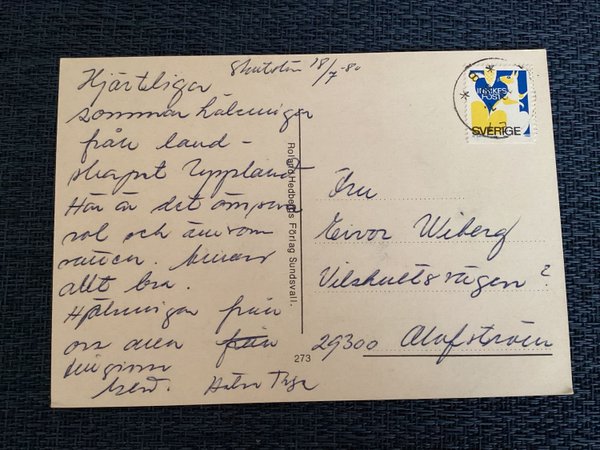 18/7-80
Hjärtliga
sommarhälsningar
från land-
skapet Uppland
Här är det ömsom
sol och ömsom
vatten. annars
allt bra.
Hjälsningar från
oss alla från
INRIKES
POST
SVERIGE
Roland Hedbergs Förlag Sundsvall.
273
Fru
Eivor Wiberg
Vilshultsvägen 2
29300 Olofström